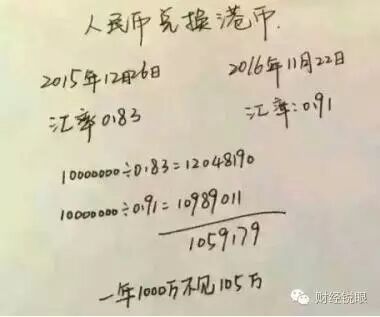 人民币兑换港币.
2015年12月26日 2016年11月22日
汇率0.83 汇率:0.91
10000000÷0.83=12048190
10000000÷0.91=10989011
1059179
一年1000万不见105万
财经锐眼